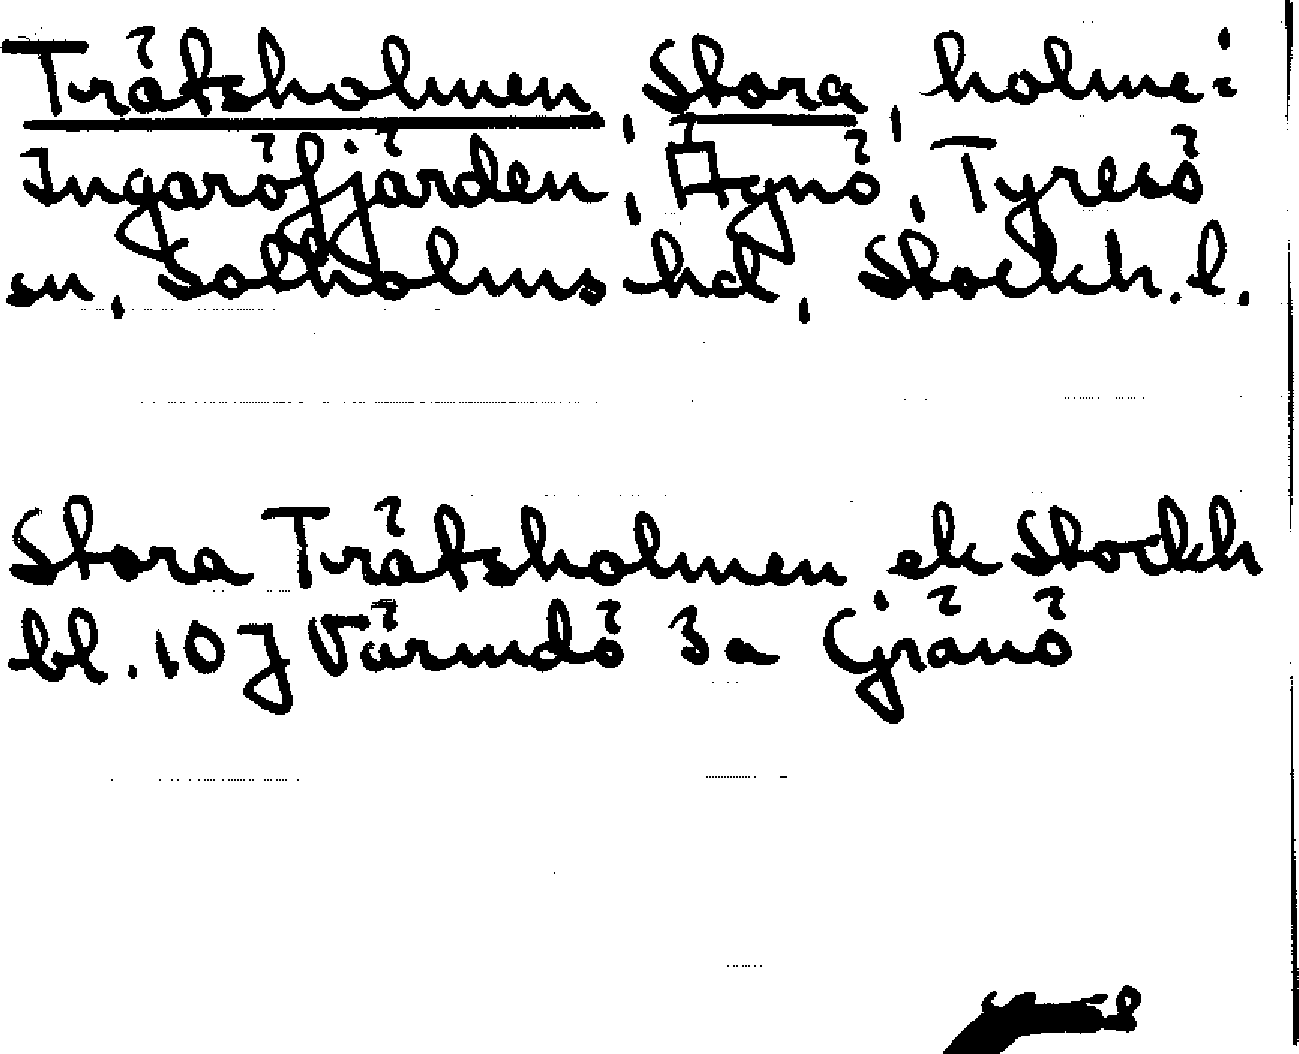 Trätsholmen, Stora, holme i
Ingaröfjärden, Ägnö, Tyresö
sn, Sotholms hd, Stockh. l.
Stora Trätsholmen ek Stockh
bl. 10 J Värmdö 3 a Gränö